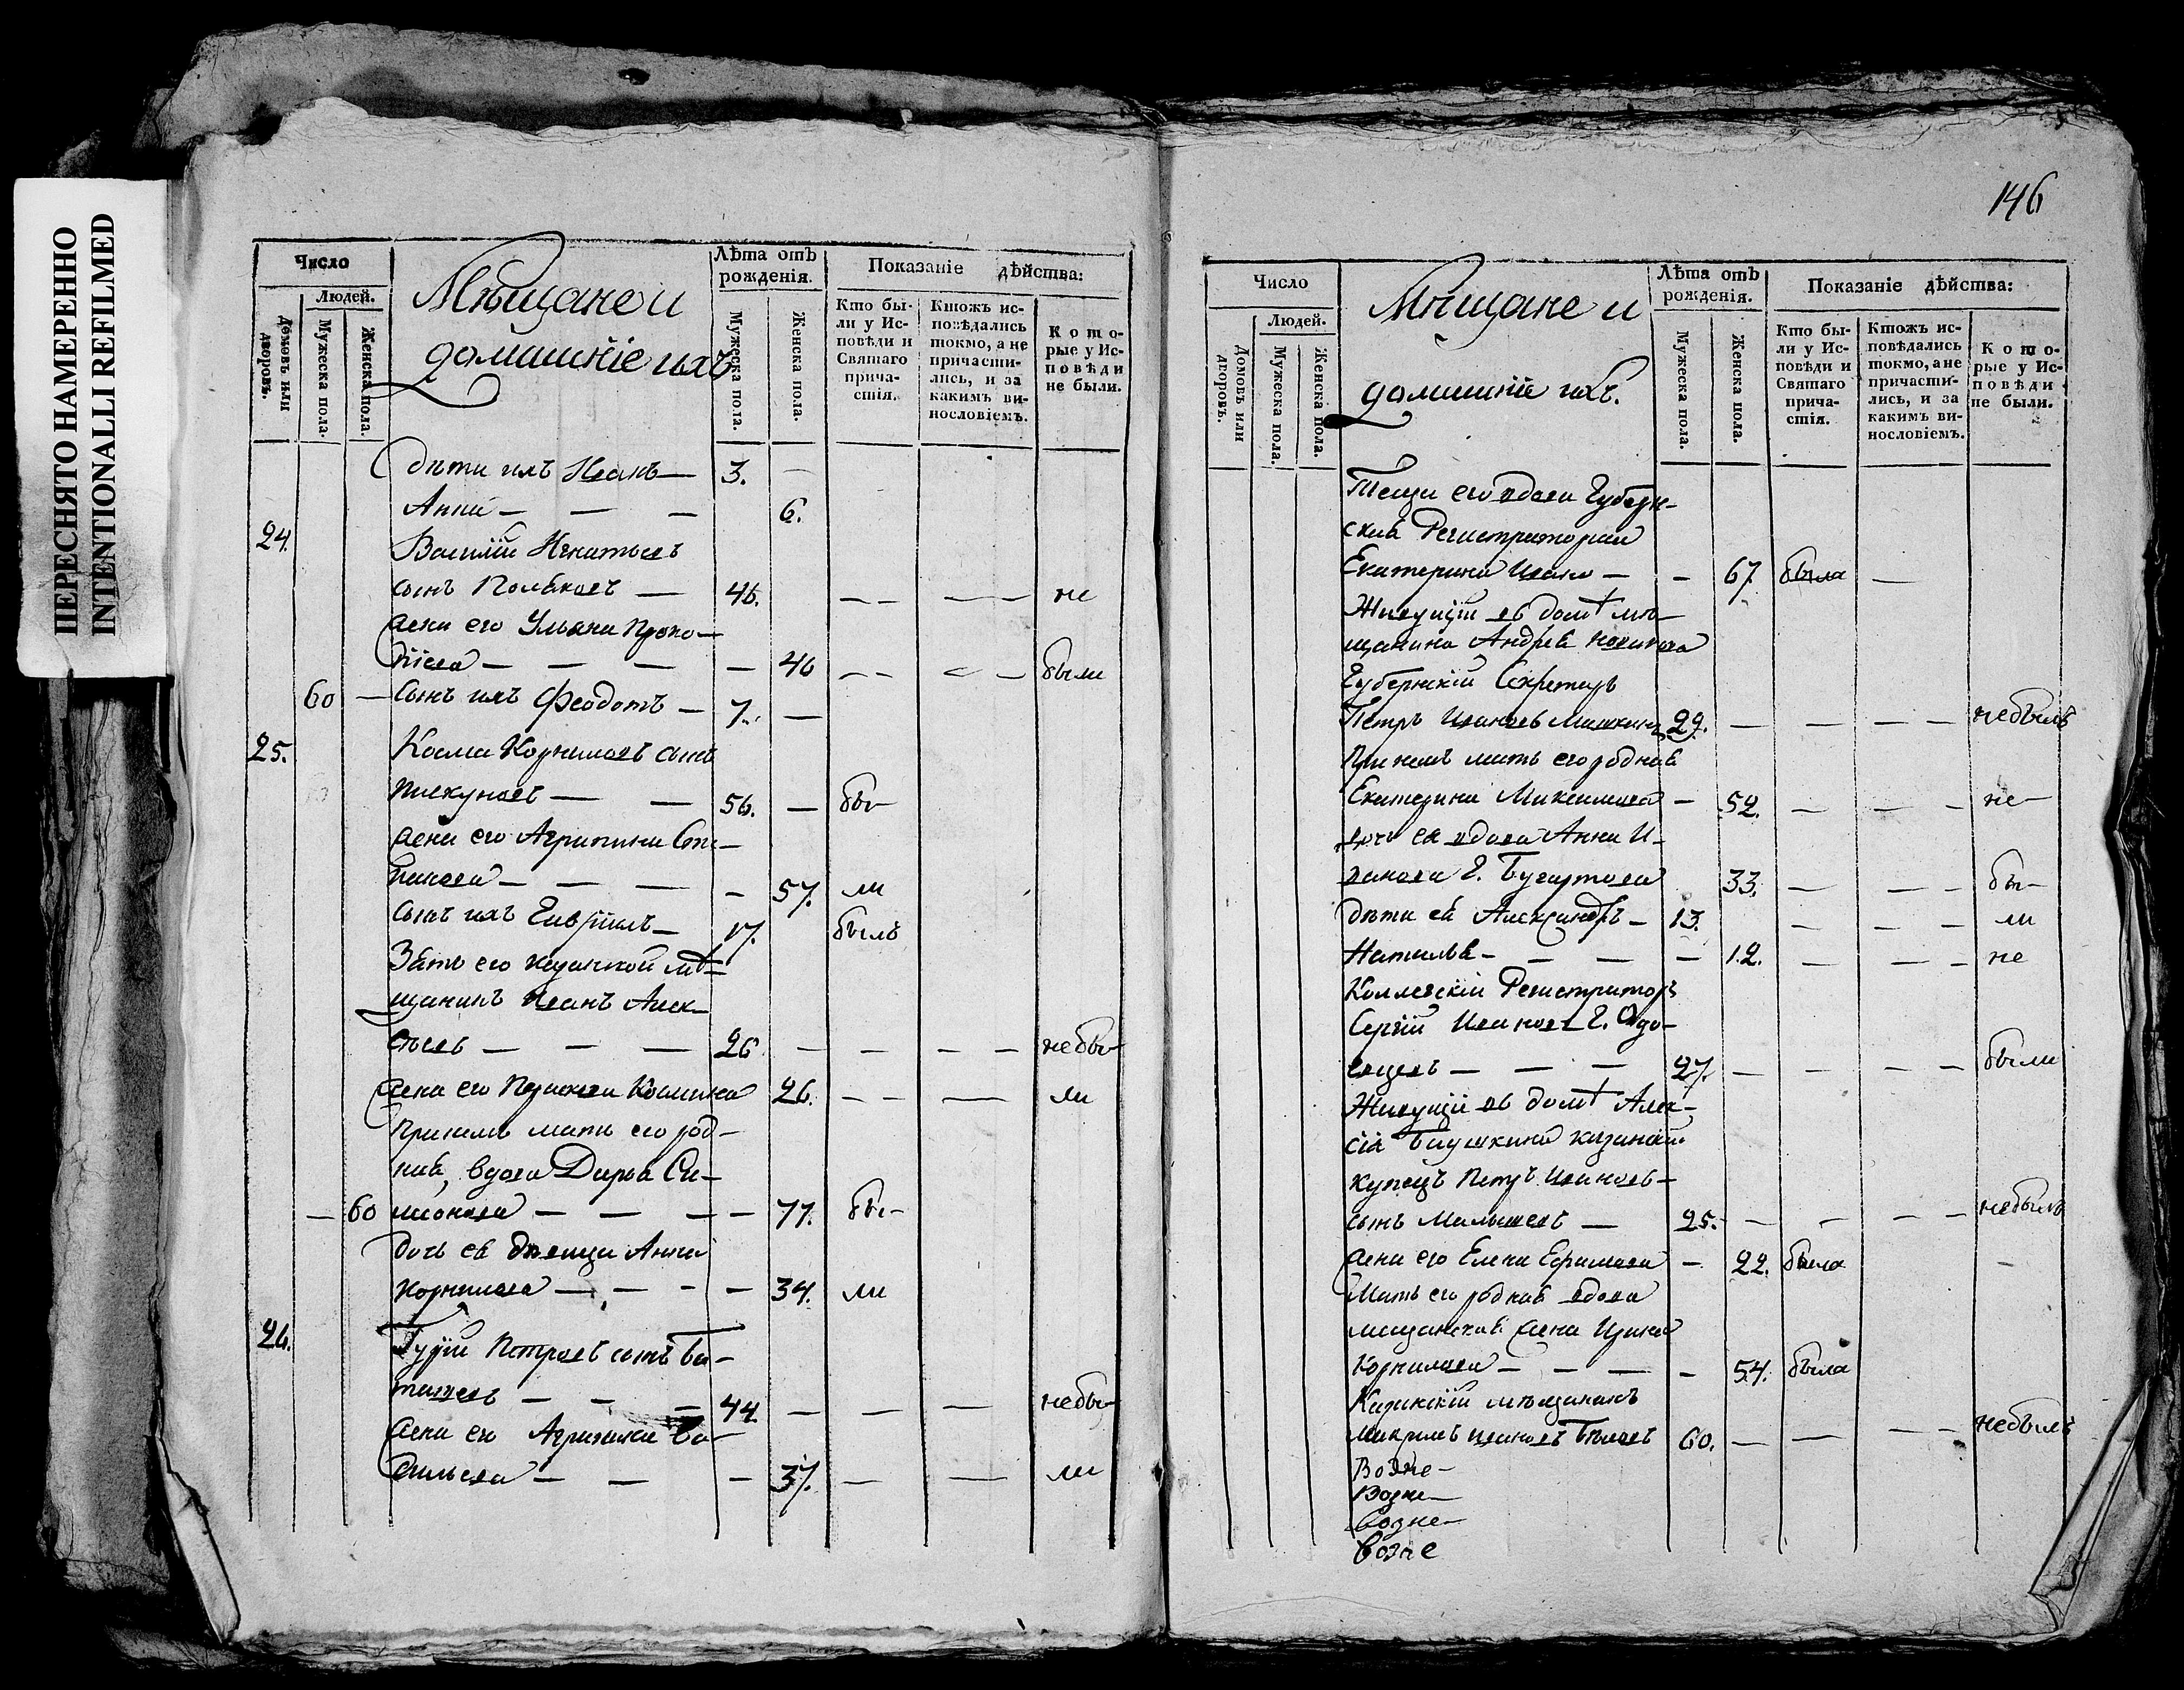 ПЕРЕСНЯТО НАМЕРЕННО
INTENTIONALLI REFILMED
Число
Людей.
Домовъ или дворовъ.
Мужеска пола.
Женска пола.
Мѣщане и
домашніе ихъ
Лѣта отъ рожденія.
Мужеска пола.
Женска пола.
Показаніе дѣйства:
Кто бы-
ли у Ис-
повѣди и
Святаго
прича-
стія.
Ктожъ ис-
повѣдались
токмо, а не
причасти-
лись, и за
какимъ ви-
нословіемъ.
Кото-
рые у Ис-
повѣди
не были.
Дѣти ихъ Иванъ — 3. —
Анна — — — 6.
24. Василій Игнатьевъ
сынъ Поляковъ — 46. — — — — не
жена его Ульяна Проко-
піева — — — — 46 — — — — были
60 — Сынъ ихъ Феодотъ — 7. —
25. Козма Корниловъ сынъ
Пискуновъ — — 56. — бы-
жена его Агрипина Сте-
панова — — — — 57. ли
Сынъ ихъ Гавріилъ — 17. былъ
Зять его казанской мѣ-
щанинъ Иванъ Алек-
сѣевъ — — — 26 — — — — небы-
жена его Козмина 26. — — — ли
При немъ мать его род-
ная, вдова Дарья Си-
— 60 мионова — — — — 77. бы-
дочь ея дѣвица Анна
Корнилова — — — — 34. ли
26. Гурій Петровъ сынъ Ба-
— — — 44. — — — — небы-
жена его Агрипина Ва-
сильева — — — 37. — — ли
146
Число
Людей.
Домовъ или дворовъ.
Мужеска пола.
Женска пола.
Мѣщане и
домашніе ихъ.
Лѣта отъ рожденія.
Мужеска пола.
Женска пола.
Показаніе дѣйства:
Кто бы-
ли у Ис-
повѣди и
Святаго
прича-
стія.
Ктожъ ис-
повѣдались
токмо, а не
причасти-
лись, и за
какимъ ви-
нословіемъ.
Кото-
рые у Ис-
повѣди
не были.
Теща его вдова Губерн-
ская Регистраторша
Екатерина Ивана — — 67. была —
Живущій въ домѣ мѣ-
щанина Андрея
Губернскій Секретарь
Петръ Ивановъ 29. — — — — небылъ
При немъ мать его родная
Екатерина Максимова — 52. — — — не-
дочь ея вдова Анна И-
ванова Г. 33. — — — бы-
дѣти ея Александръ — 13. — — — ли
Наталья — — — — 12. — — — не
Коллежскій Регистраторъ
Сергій Ивановъ Г. Одо-
евцевъ — — — 27. — — — — были
Живущій въ домѣ Алек-
сія казанской
купецъ Петръ Ивановъ
сынъ Малышевъ — 25. — — — — небылъ
жена его Елена Ефимова — 22. была —
Мать его родная вдова
мещанская жена Ирина
Корнилова — — — — 54. была
Казанскій мѣщанинъ
Ивановъ Бѣловъ 60. — — — — небылъ
Возне-
Возне-
Возне-
Возне